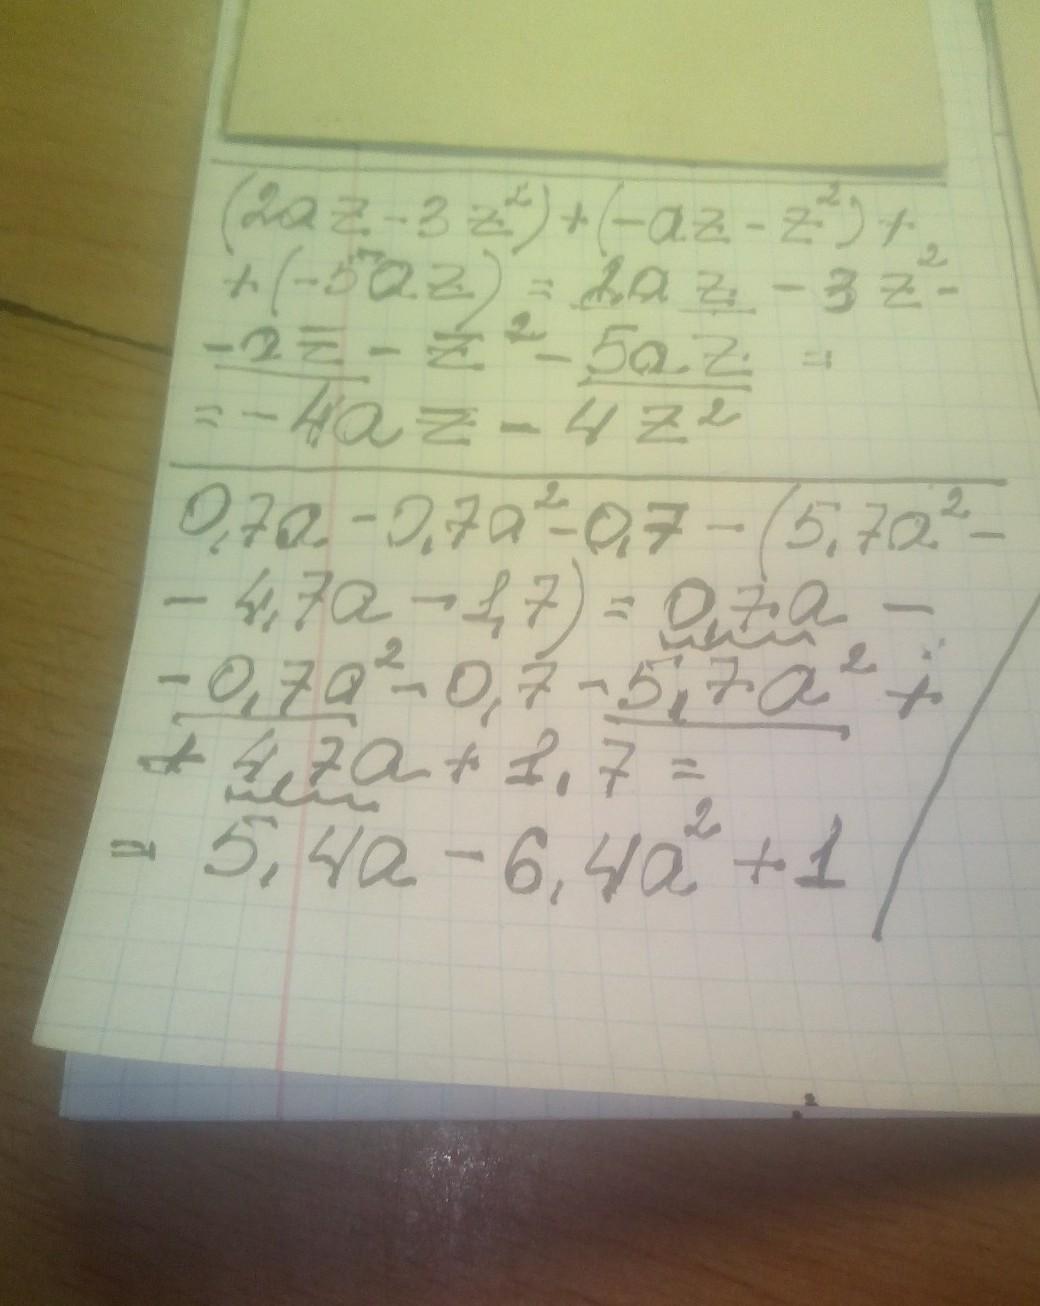 (2az - 3z²) + (-az - z²) +
+ (-5az) = 2az - 3z² -
- az - z² - 5az =
= - 4az - 4z²
0,7a - 0,7a² - 0,7 - (5,7a² -
- 4,7a - 1,7) = 0,7a -
- 0,7a² - 0,7 - 5,7a² +
+ 4,7a + 1,7 =
= 5,4a - 6,4a² + 1